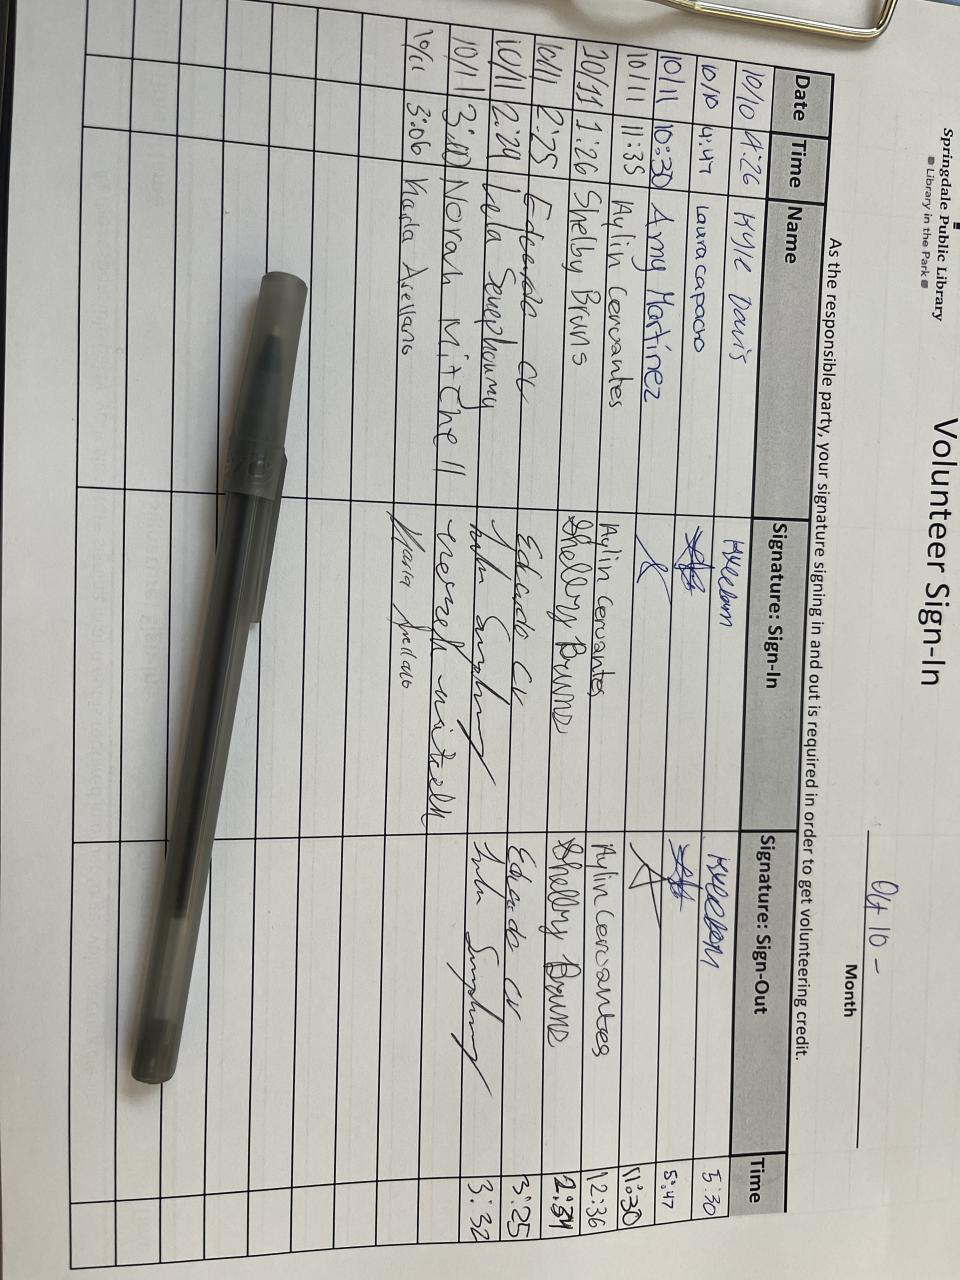 Springdale Public Library
Library in the Park
Volunteer Sign-In
Oct 10 -
Month
As the responsible party, your signature signing in and out is required in order to get volunteering credit.
Date Time Name Signature: Sign-In Signature: Sign-Out Time
10/10 4:26 Kyle Davis 5:30
10/10 4:47 Laura capacho 5:47
10/11 10:30 Amy Martinez 11:30
10/11 11:35 Aylin Cervantes Aylin Cervantes Aylin Cervantes 12:36
10/11 1:26 Shelby Bruns Shelby Bruns Shelby Bruns
10/11 2:25 Eduardo cv Eduardo cv Eduardo cv 3:25
10/11 Lela 3:32
10/11 Norah Mitchell norah mitchell
10/11 3:06 Karla Arellano Karla Arellano